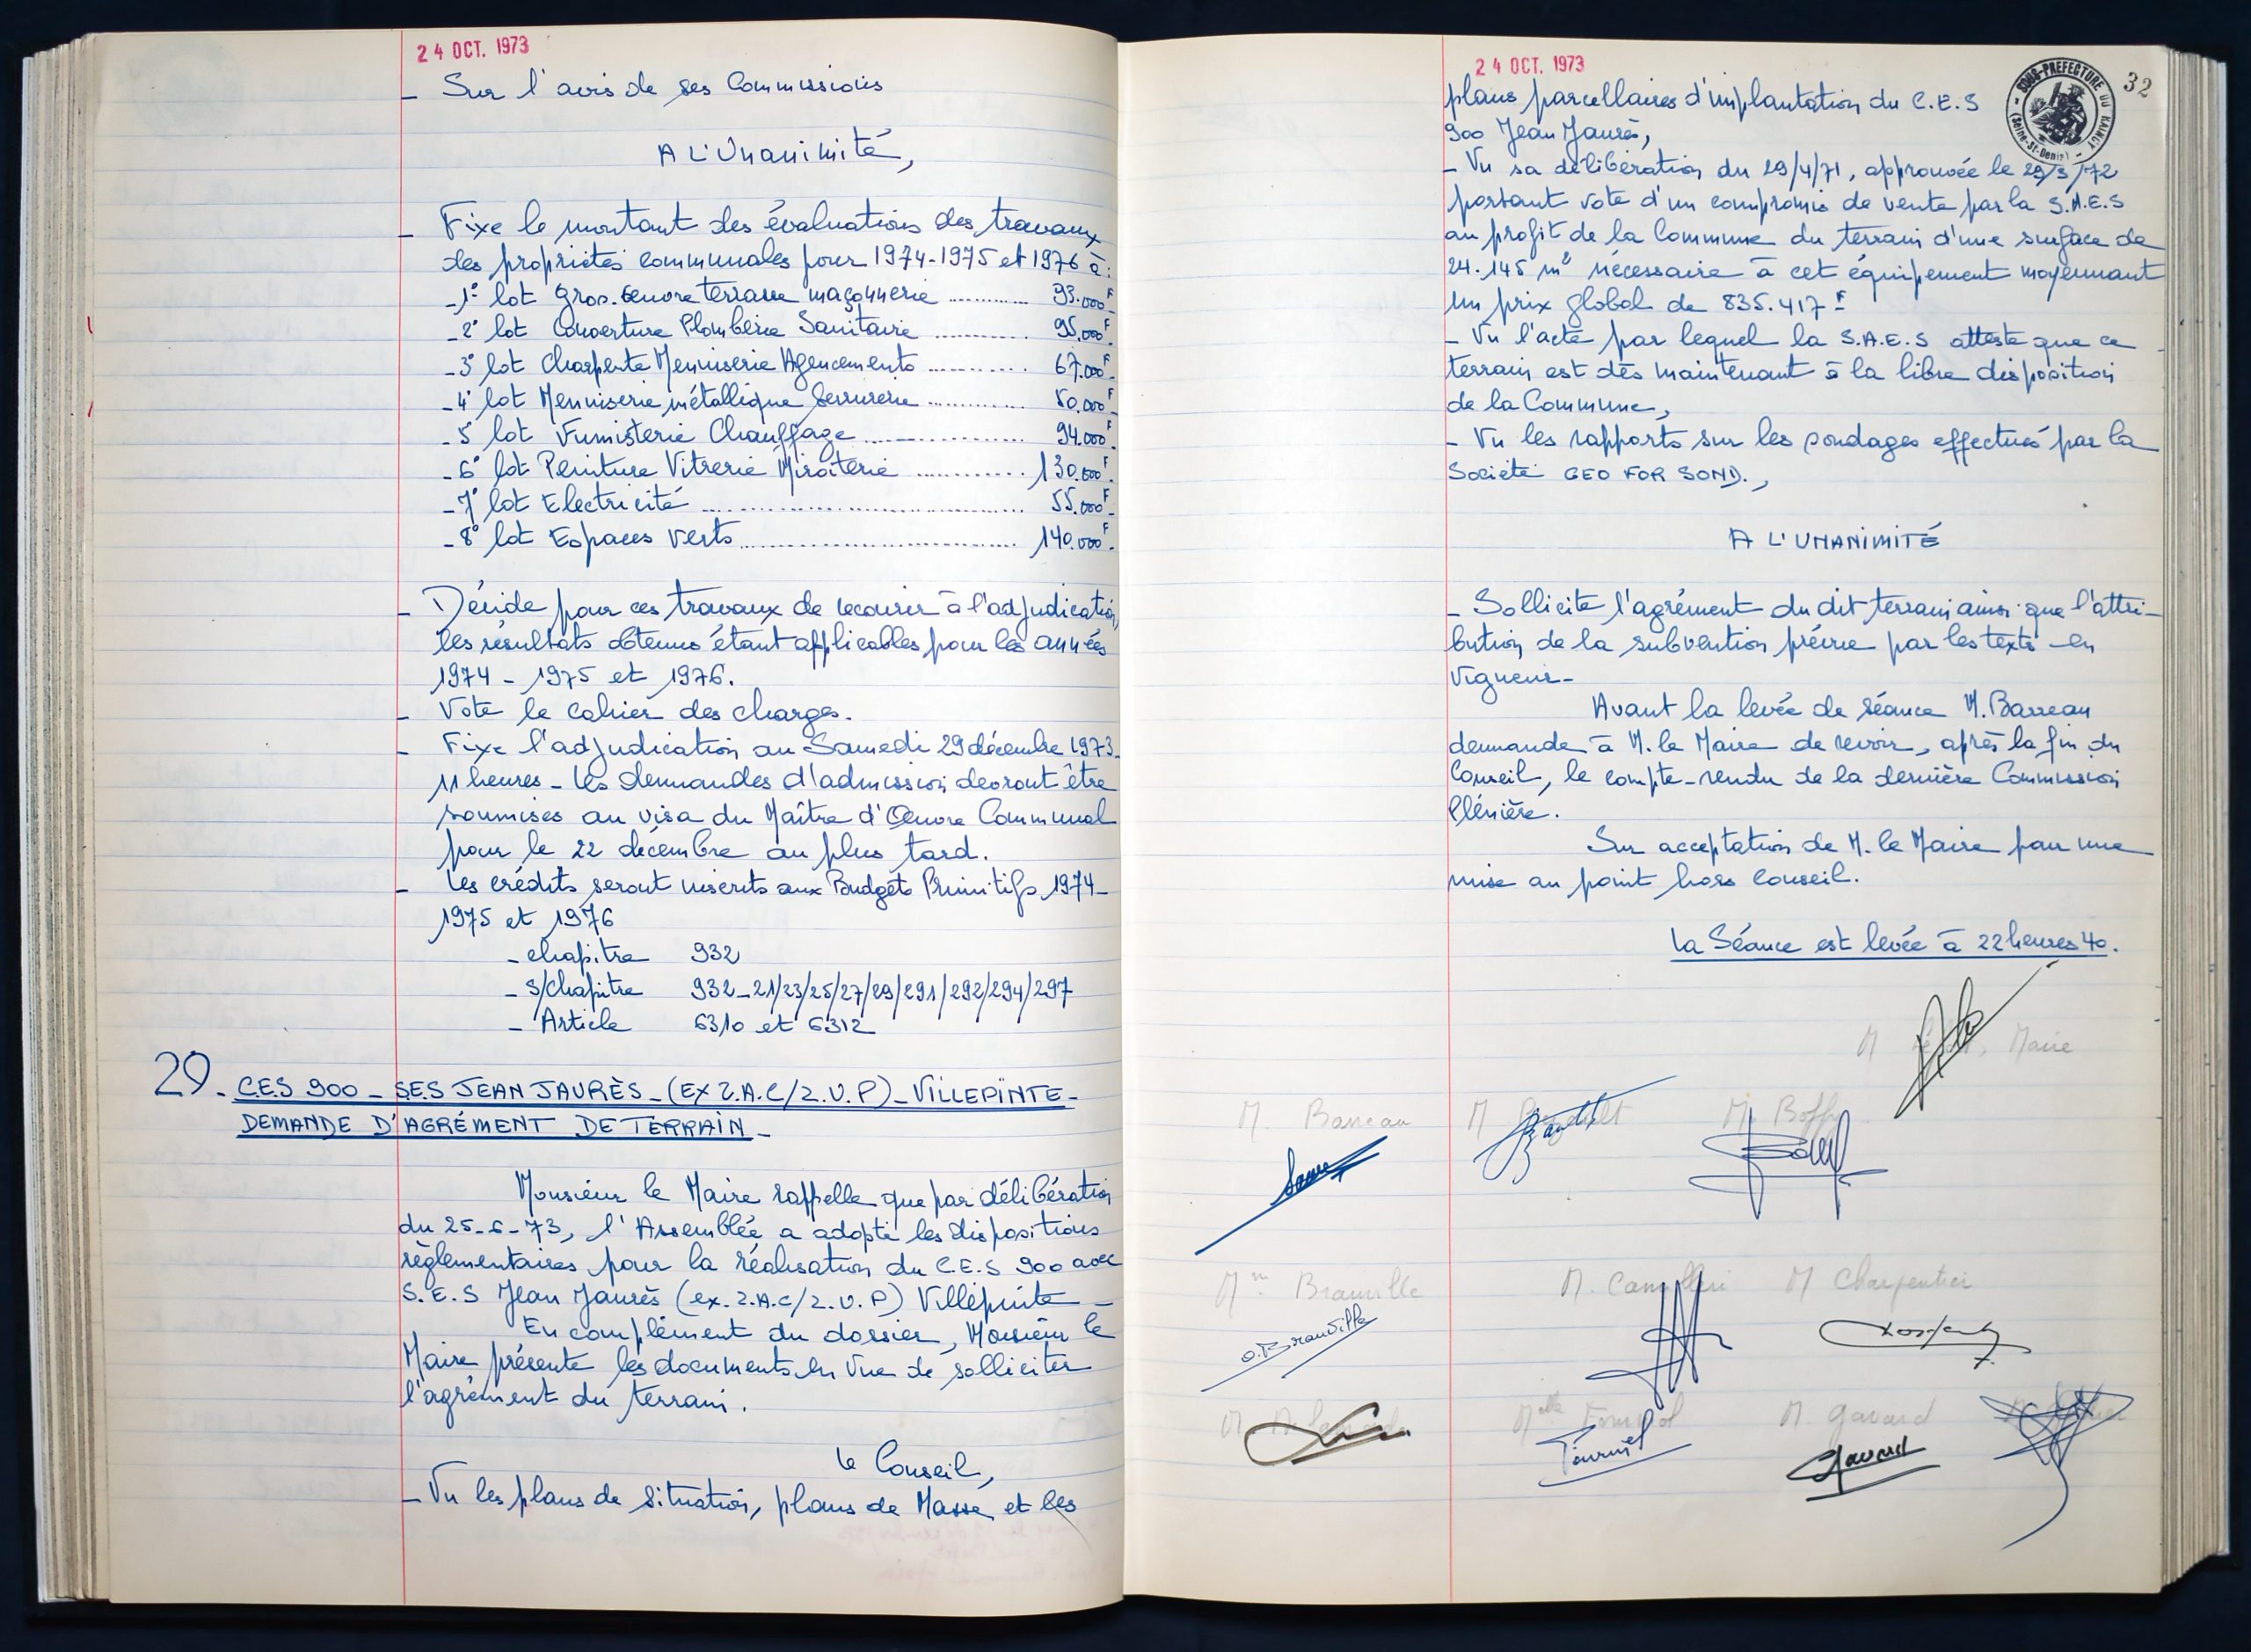 24 OCT. 1973
- Sur l'avis de ses Commissions
A L'Unanimité,
- Fixe le montant des évaluations des travaux
des propriétés communales pour 1974-1975 et 1976 à :
- 1° lot Gros-œuvre terrasse maçonnerie ............ 93.000F
- 2° lot Couverture Plomberie Sanitaire ............ 95.000F
- 3° lot Charpente Menuiserie Agencements ............ 67.000F
- 4° lot Menuiserie métallique Serrurerie ............ 50.000F
- 5° lot Fumisterie Chauffage ............ 94.000F
- 6° lot Peinture Vitrerie Miroiterie ............ 130.000F
- 7° lot Electricité ............ 55.000F
- 8° lot Espaces Verts ............ 140.000F
- Décide pour ces travaux de recourir à l'adjudication,
les résultats obtenus étant applicables pour les années
1974 - 1975 et 1976.
- Vote le cahier des charges.
- Fixe l'adjudication au Samedi 29 décembre 1973-
11 heures - Les demandes d'admission devront être
soumises au visa du Maître d'Œuvre Communal
pour le 22 décembre au plus tard.
- Les crédits seront inscrits aux Budgets Primitifs 1974-
1975 et 1976
- chapitre 932
- S/chapitre 932-21/23/25/27/29/291/292/294/297
- Article 6310 et 6312
29. C.E.S 900 - S.E.S JEAN JAURÈS - (EX Z.A.C/Z.U.P) - VILLEPINTE -
DEMANDE D'AGRÉMENT DE TERRAIN -
Monsieur le Maire rappelle que par délibération
du 25-6-73, l'Assemblée a adopté les dispositions
règlementaires pour la réalisation du C.E.S 900 avec
S.E.S Jean Jaurès (ex. Z.A.C/Z.U.P) Villepinte -
En complément du dossier, Monsieur le
Maire présente les documents en vue de solliciter
l'agrément du terrain.
Le Conseil,
- Vu les plans de situation, plans de Masse, et les
24 OCT. 1973
SOUS-PREFECTURE DU RAINCY
(Seine-St-Denis)
32
plans parcellaires d'implantation du C.E.S
900 Jean Jaurès,
- Vu sa délibération du 29/4/71, approuvée le 29/3/72
portant vote d'un compromis de vente par la S.A.E.S
au profit de la Commune du terrain d'une surface de
24.145 m² nécessaire à cet équipement moyennant
un prix global de 835.417 F
- Vu l'acte par lequel la S.A.E.S atteste que ce
terrain est dès maintenant à la libre disposition
de la Commune,
- Vu les rapports sur les sondages effectués par la
Société GEO FOR SOND.,
A L'UNANIMITÉ
- Sollicite l'agrément du dit terrain ainsi que l'attri-
bution de la subvention prévue par les textes en
vigueur -
Avant la levée de séance M. Barreau
demande à M. le Maire de revoir, après la fin du
Conseil, le compte-rendu de la dernière Commission
Plénière.
Sur acceptation de M. le Maire pour une
mise au point hors conseil.
La Séance est levée à 22 heures 40.
M , Maire
M. Barreau M M. Boffy
Mme Branville M. Camilleri M Charpentier
O. Branville
M Melle Fournol M Gavard
Gavard